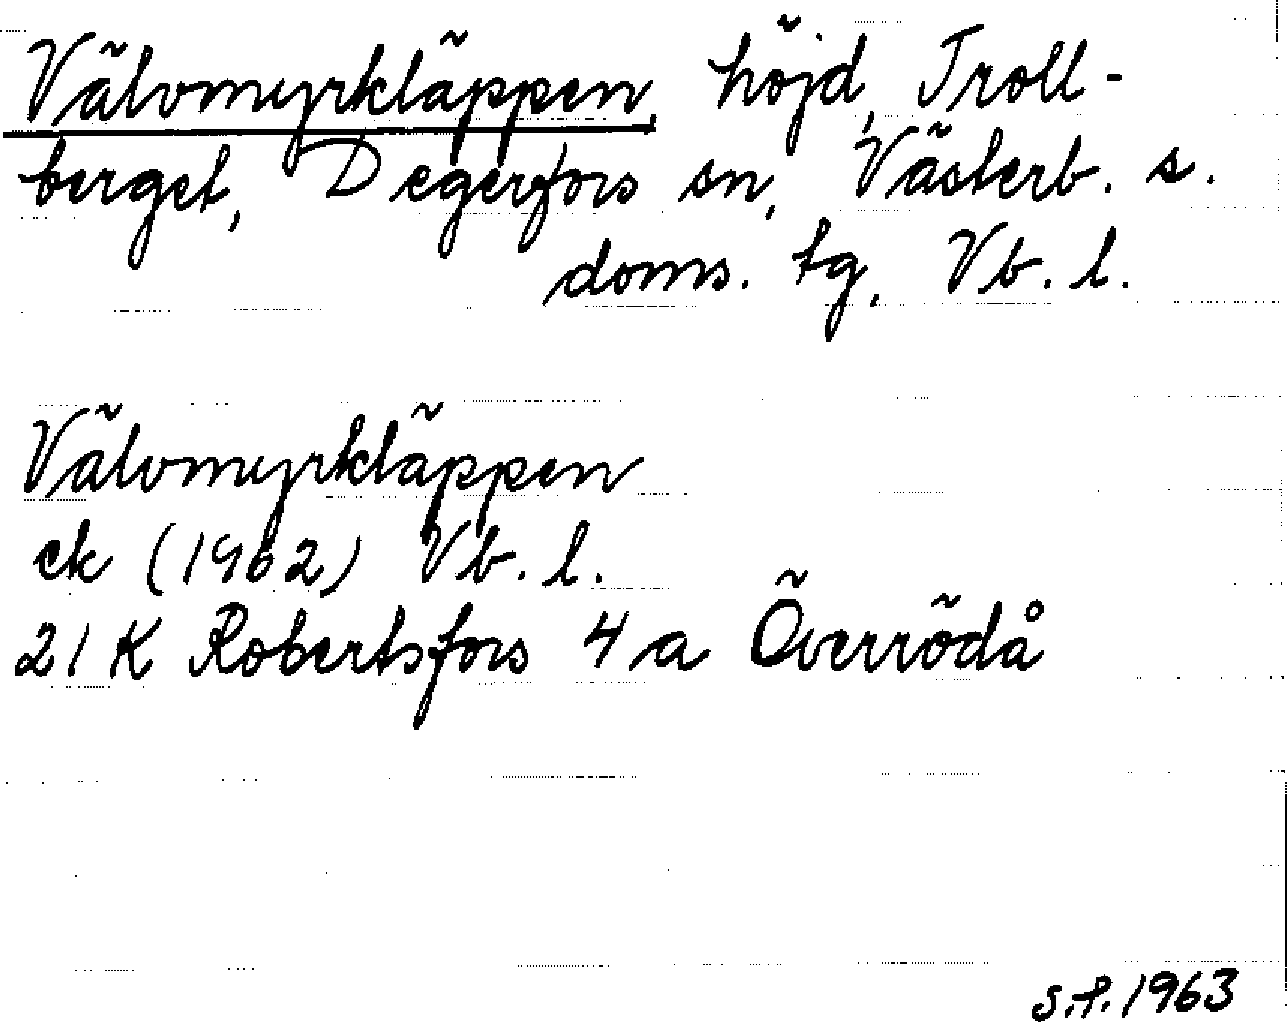 Välvmyrkläppen, höjd, Troll-
berget, Degerfors sn, Västerb. s.
doms. tg, Vb. l.
Välvmyrkläppen
ek (1962) Vb. l.
21 K Robertsfors 4 a Överrödå
s.f. 1963